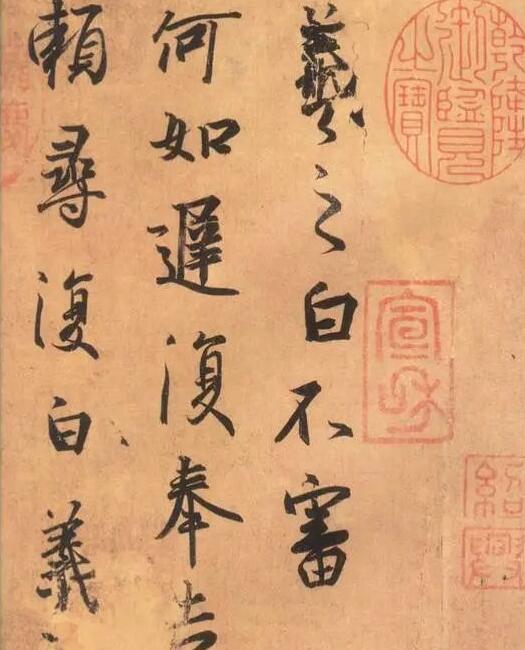 乾隆御覽之寶
宣和
紹興
羲之白不審
何如遲復奉
賴尋復白羲